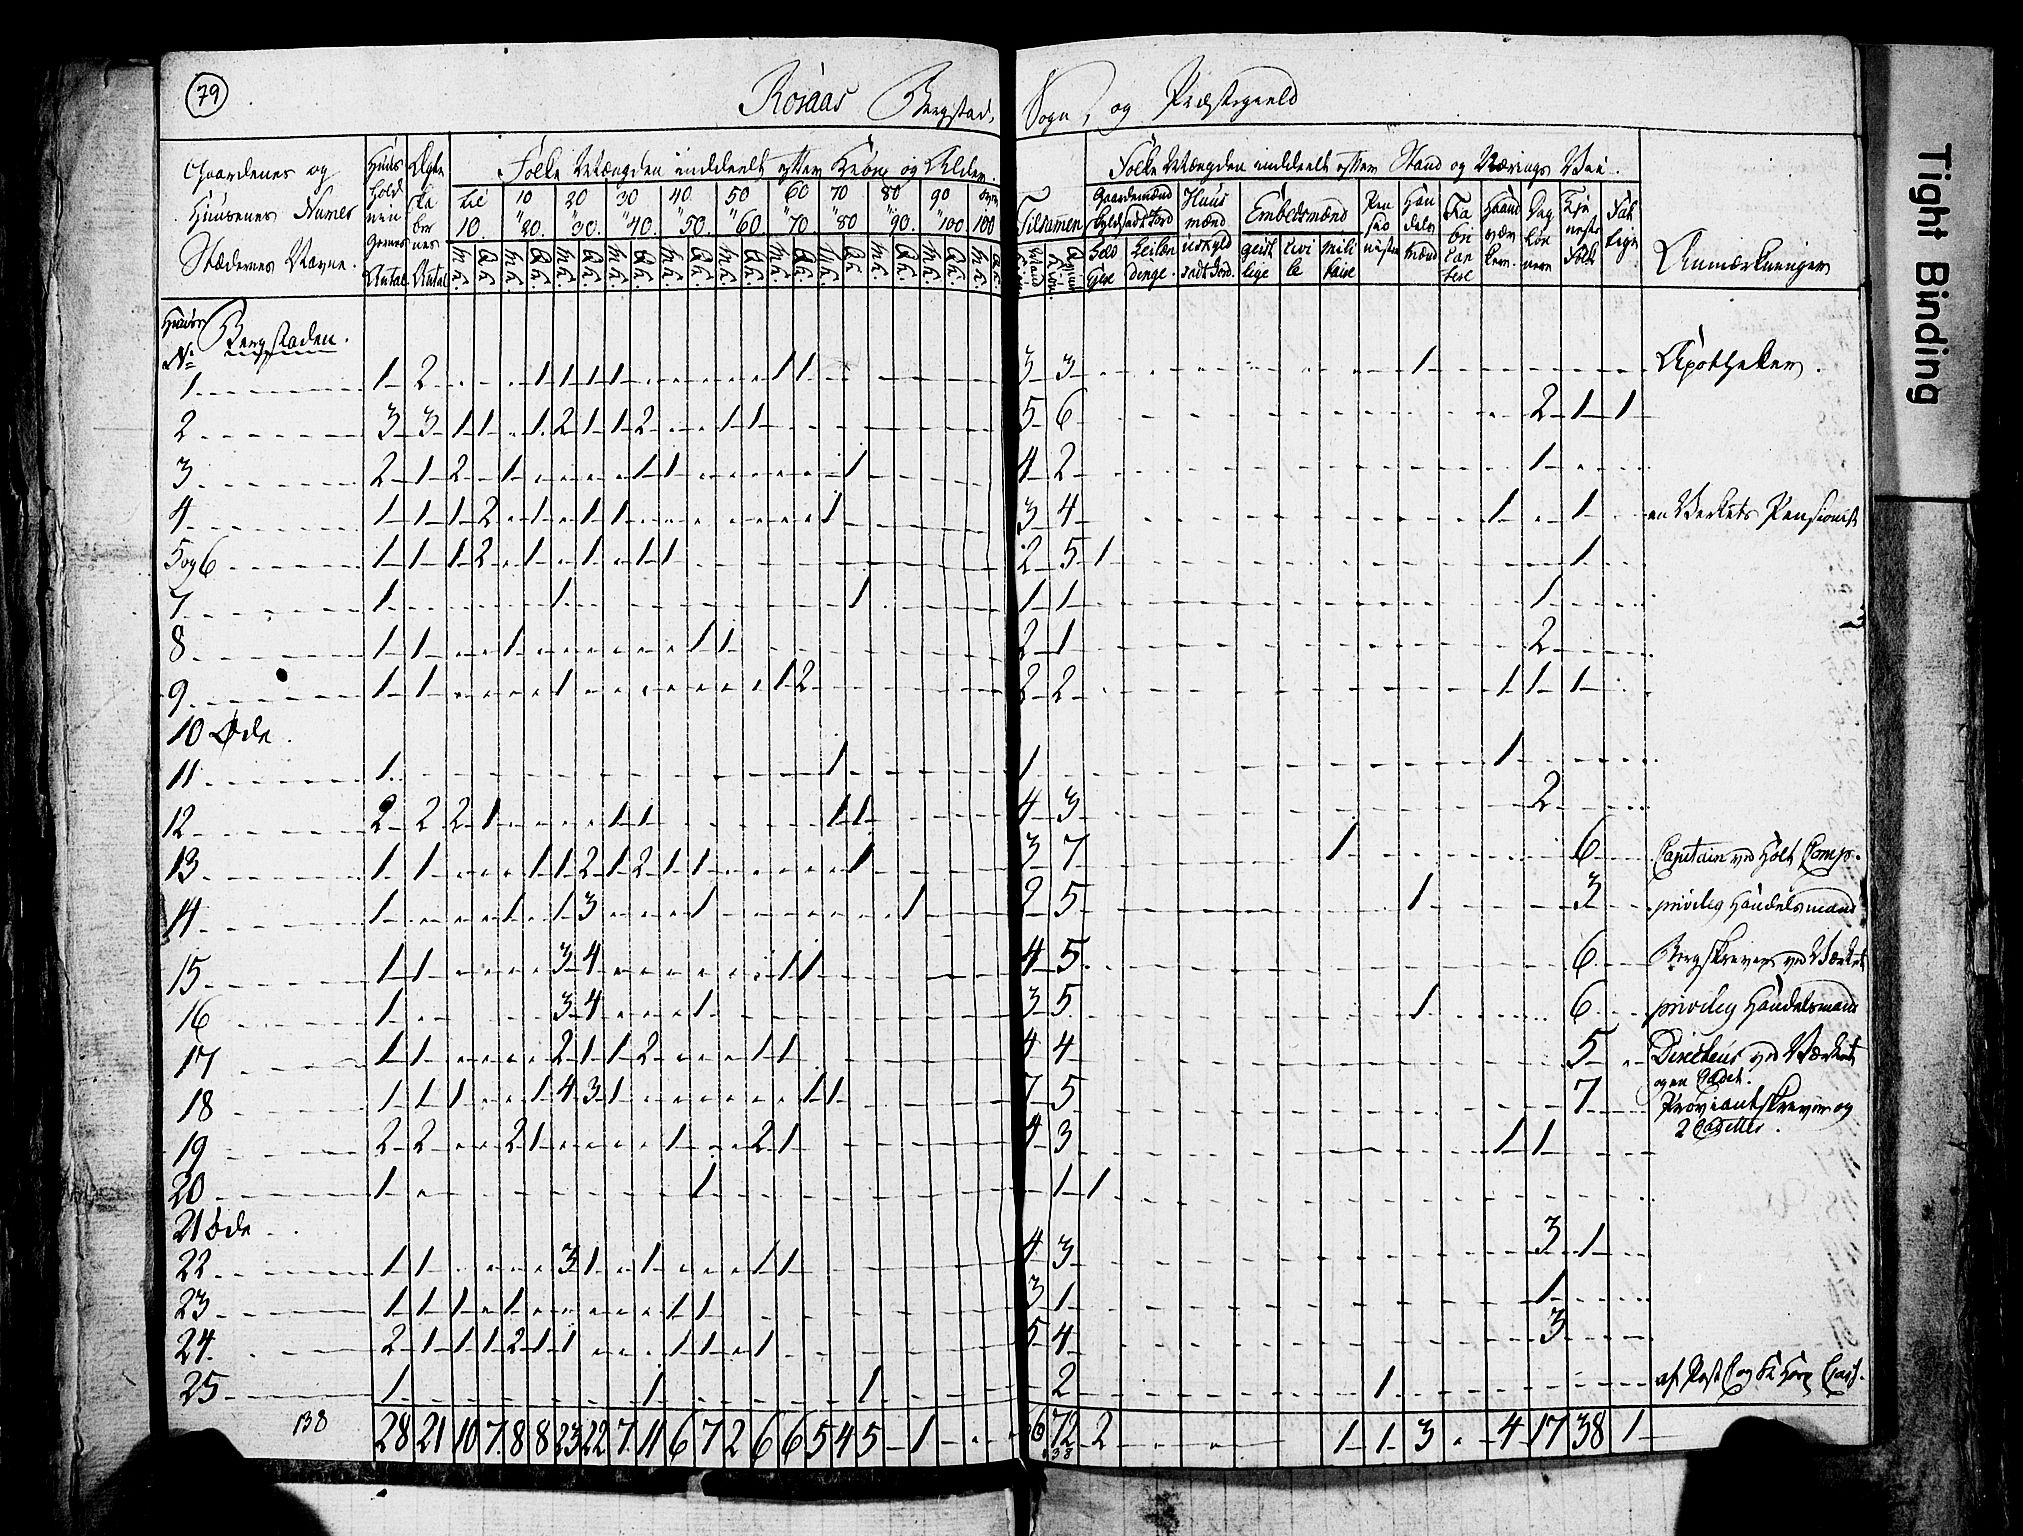 79
Röraas Bergstad, Sogn, og Præstegield
Gaardenes og Huusenes Numer Stædernes Navne.
Huus Hold nin gernes Antal
Ægte Antal
Folke Mængden inddeelt efter Kiön og Alder.
til 10. 10 " 20. 20 " 30. 30 " 40. 40 " 50. 50 " 60. 60 " 70. 70 " 80 80 " 90. 90 " 100 over 100
Tilsammen
Folke Mængden inddeelt efter Stand og Nærings Vei.
Gaardemænd
Huus mænd
Embedsmænd
geist lige
civi le
mili taire
Pen sio nister
Han dels mænd
Fa bri can tere
Haand vær kere.
Dag løn nere
Tje neste Folk
Fat tige
Anmærkninger
Huus No Bergstaden.
1 1 2 1 1 1 1 1 1 1 3 3 1 Apotheker.
2 3 3 1 1 1 2 1 1 2 1 1 5 6 2 1 1
3 2 1 2 1 1 1 1 4 2 1
4 1 1 1 2 1 1 1 1 3 4 1 1 en Verkets Pensionist
5 og 6 1 1 1 2 1 1 1 1 2 5 1 1
7 1 1 1 1 1 1
8 1 1 1 1 1 2 1 2
9 1 1 1 1 2 2 2 1 1 1
10 Øde.
11 1 1 1 1
12 2 2 2 1 1 1 1 1 4 3 2
13 1 1 1 1 2 1 2 1 1 1 3 7 1 6 Capitain ved Holt Comp.
14 1 1 1 3 1 1 2 5 1 3 privileg Handelsmand
15 1 1 3 4 1 1 4 5 6 Bergskriver ved Værket
16 1 3 4 1 3 5 1 6 privileg Handelsmand
17 1 1 2 1 1 2 1 1 4 4 5 Directeur ved Værket og en Cadet.
18 1 1 1 1 4 3 1 1 1 7 5 7 Proviantskriver og 2 Cadetter.
19 2 2 2 1 1 2 1 4 3 1 1
20 1 1 1 1
21 øde
22 1 1 3 1 1 1 1 4 3 3 1
23 1 1 1 1 1 1 3 1 1
24. 2 1 1 1 2 1 1 1 1 1 5 4 3
25 1 1 1 2 1
138 28 21 10 7 8 8 23 22 7 11 6 7 2 6 6 5 4 5 1 72 2 1 1 3 4 17 38 1
Tight Binding